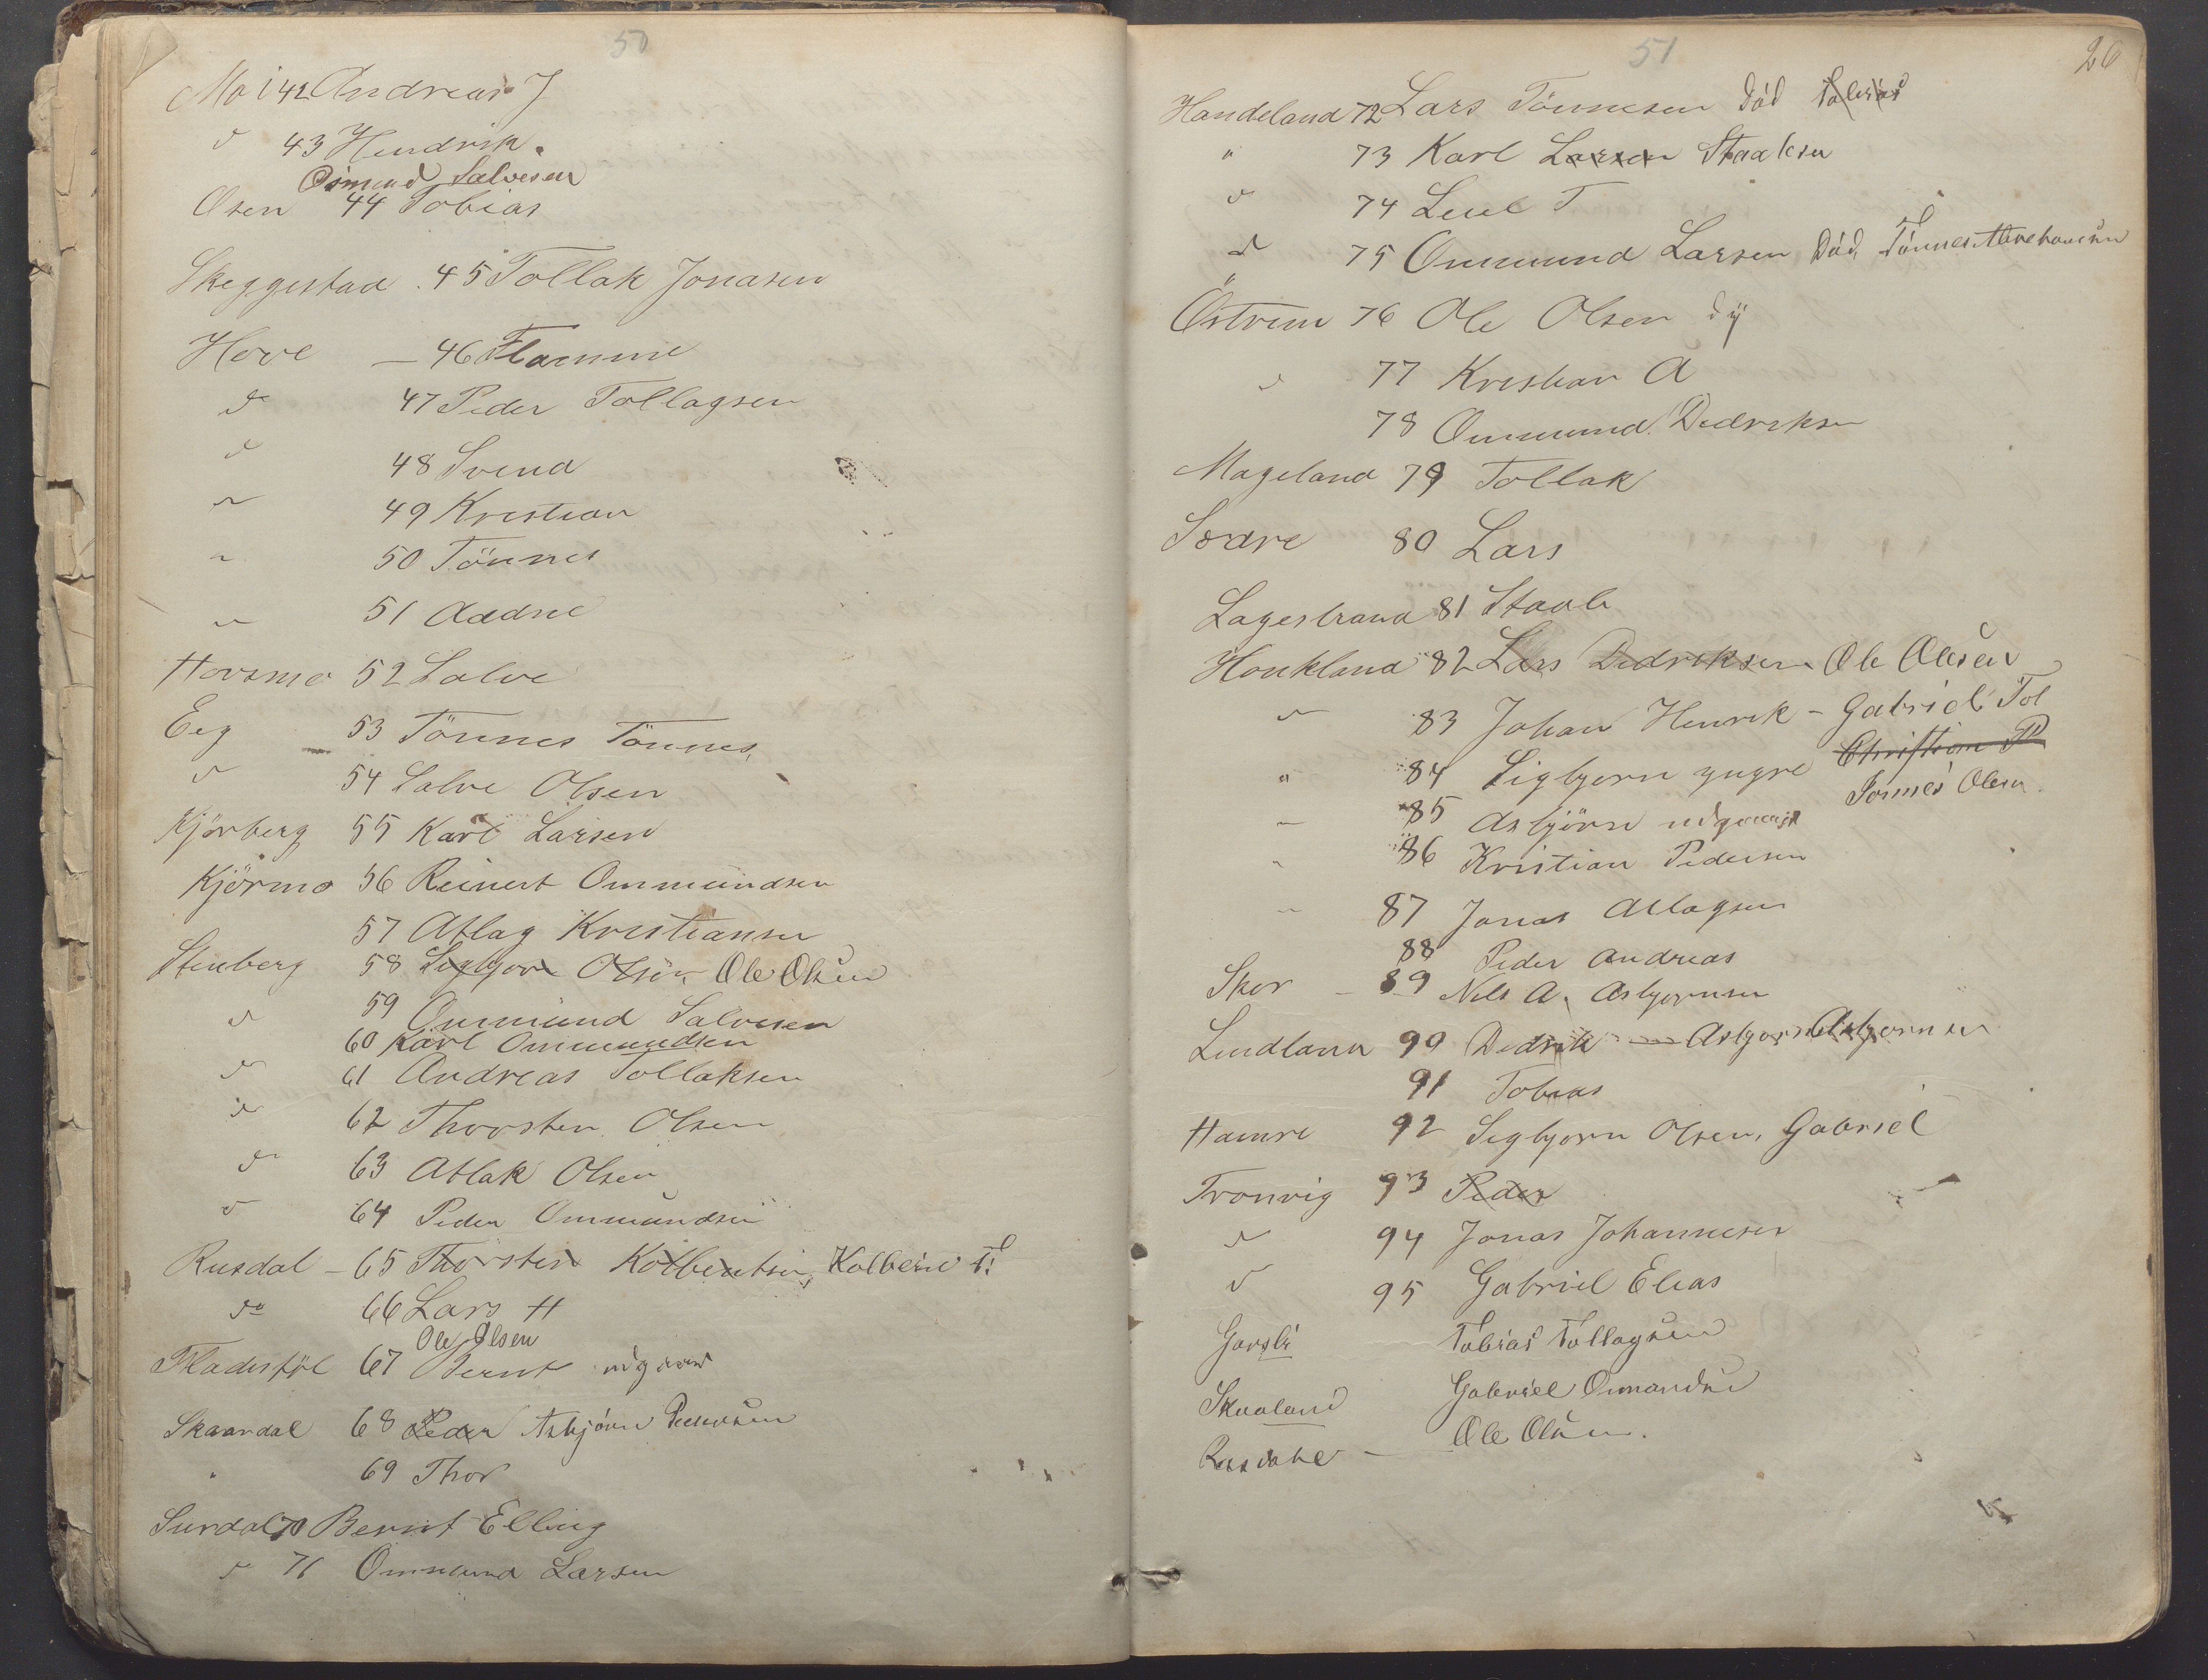 50
Moi 42 Andreas J
d 43 Hendrik
Osmund Salvesen
Osen 44 Tobias
Skeggestad 45 Tollak Jonasen
Hove — 46 Flamme
do 47 Peder Tollagsen
d 48 Svend
" 49 Kristian
" 50 Tönnes
" 51 Aadne
Hovsmo 52 Salve
Eeg 53 Tönnes Tönnes
d 54 Salve Olsen
Kjörberg 55 Karl Larsen
Kjörmo 56 Reinert Ommundsen
57 Atlag Kristiansen
Stenberg 58 Sigbjorn Olsen Ole Olsen
d 59 Ommund Salvesen
60 Karl Ommundsen
d 61 Andreas Tollaksen
d 62 Thorsten Olsen
do 63 Atlak Olsen
d 64 Peder Ommundsen
Rusdal – 65 Thorsten Kolbentsen, Kolbein T.
do 66 Lars H
Ole Olsen
67 Bernt
Skaardal 68 Peder Asbjörn Pedersen
" 69 Thor
Surdal 70 Bernt Elling
d 71 Ommund Larsen
51
26
Handeland 72 Lars Tönnesen Död Tobias
" 73 Karl Larsen Staalesen
d 74 Leul T
d 75 Ommund Larsen Död, Tönnes
Östrem 76 Ole Olsen
d 77 Kristian A
78 Ommund Dedriksen
Mageland 79 Tollak
Sordre 80 Lars
Lagestrand 81 Staale
Haukland 82 Lars Dedriksen Ole Olesen
" 83 Johan Henrik – Gabriel Tol
" 84 Sigbjorn yngre Christian P
Tönnes Olsen
" 85 Asbjörn
" 86 Kristian Pedersen
" 87 Jonas Atlagsen
88 Peder Andreas
Skor – 89 Nils A. Asbjornsen
Lindland 90 Dedrik — Asbjorn Asbjornsen
91 Tobias
Hamre 92 Sigbjorn Olsen, Gabriel
Tronvig 93 Peder
d 94 Jonas Johannesen
d 95 Gabriel Elias
Tobias Tollagsen
Skaaland Gabriel
Rusdahl — Ole Olsen.